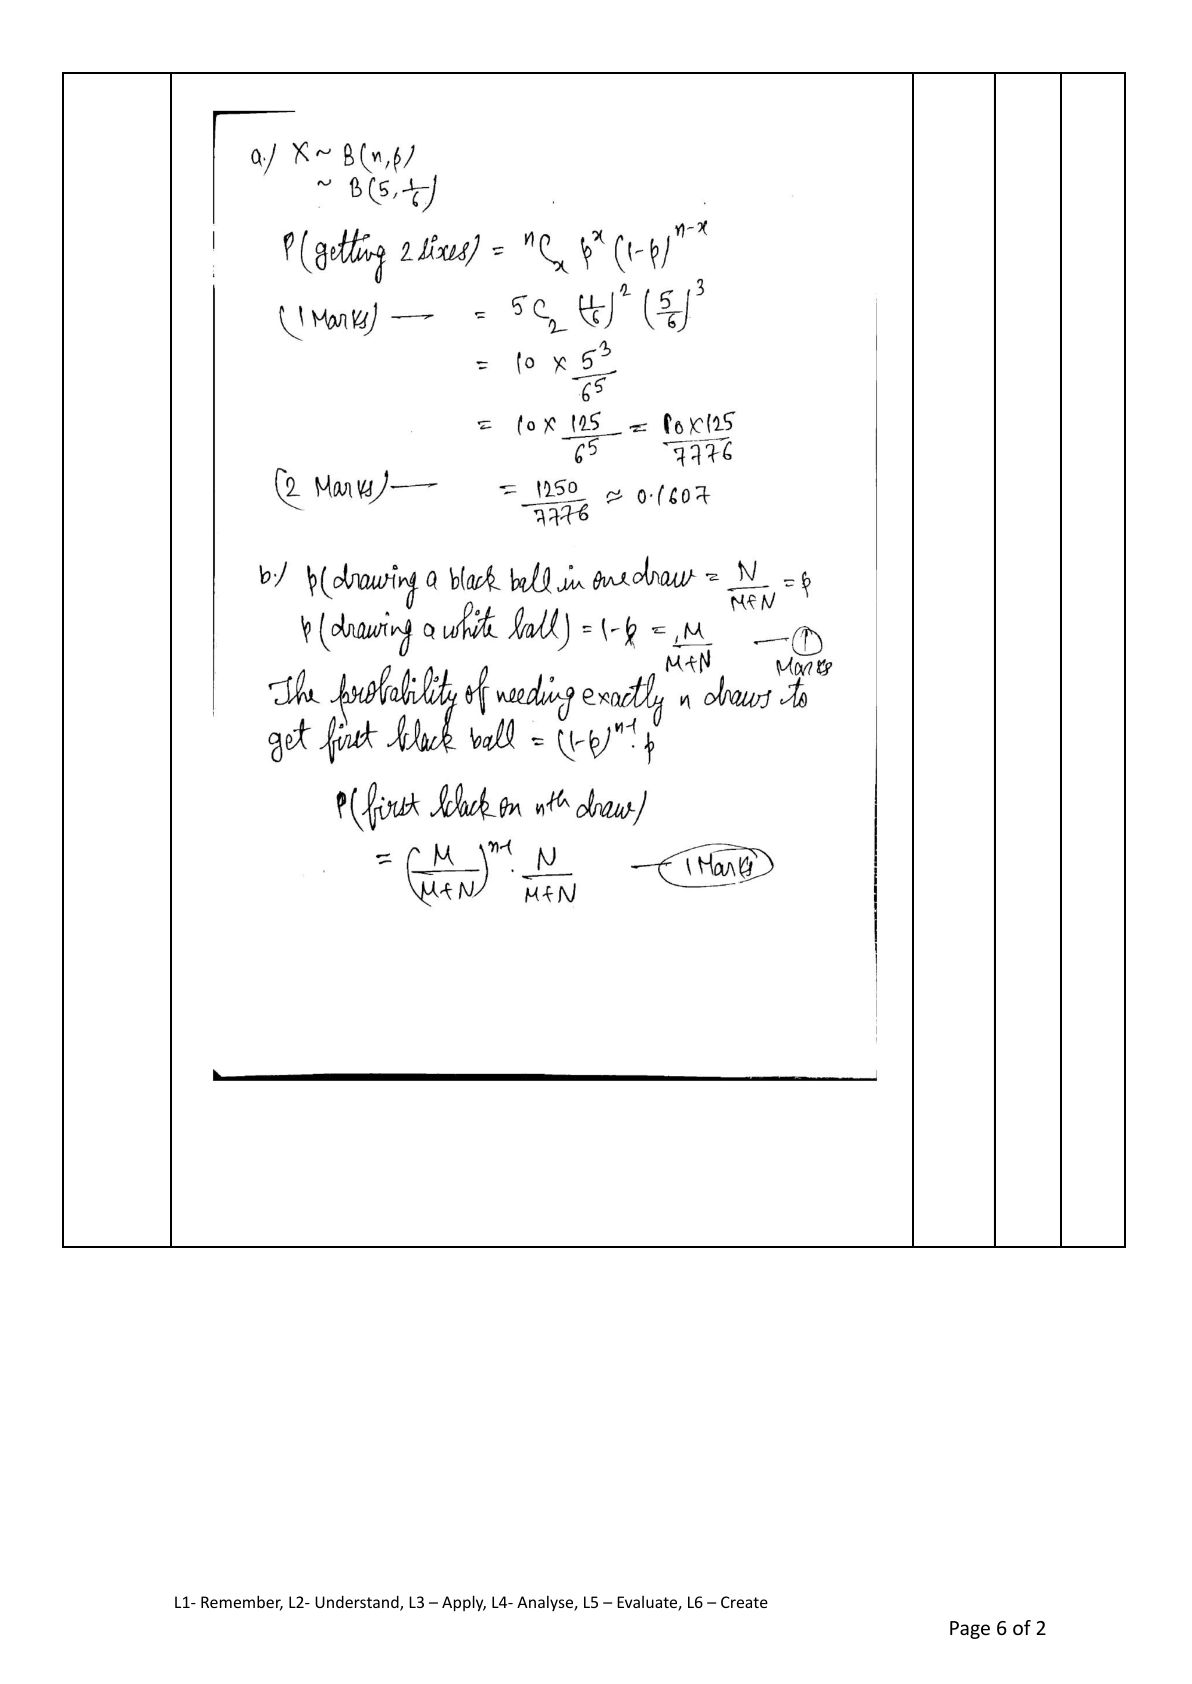 a.) X ~ B(n, p)
~ B(5, 1/6)
P(getting 2 sixes) = ⁿCₓ pˣ (1-p)ⁿ⁻ˣ
(1 Marks) — = 5C₂ (1/6)² (5/6)³
= 10 x 5³/6⁵
= 10 x 125/6⁵ = 10x125/7776
(2 Marks) — = 1250/7776 ≈ 0.1607
b.) p(drawing a black ball in one draw = N/M+N = p
p(drawing a white ball) = 1-p = M/M+N — 1
Marks
The probability of needing exactly n draws to
get first black ball = (1-p)ⁿ⁻¹. p
P(first black on nth draw)
= (M/M+N)ⁿ⁻¹ . N/M+N — 1 Marks
L1- Remember, L2- Understand, L3 – Apply, L4- Analyse, L5 – Evaluate, L6 – Create
Page 6 of 2